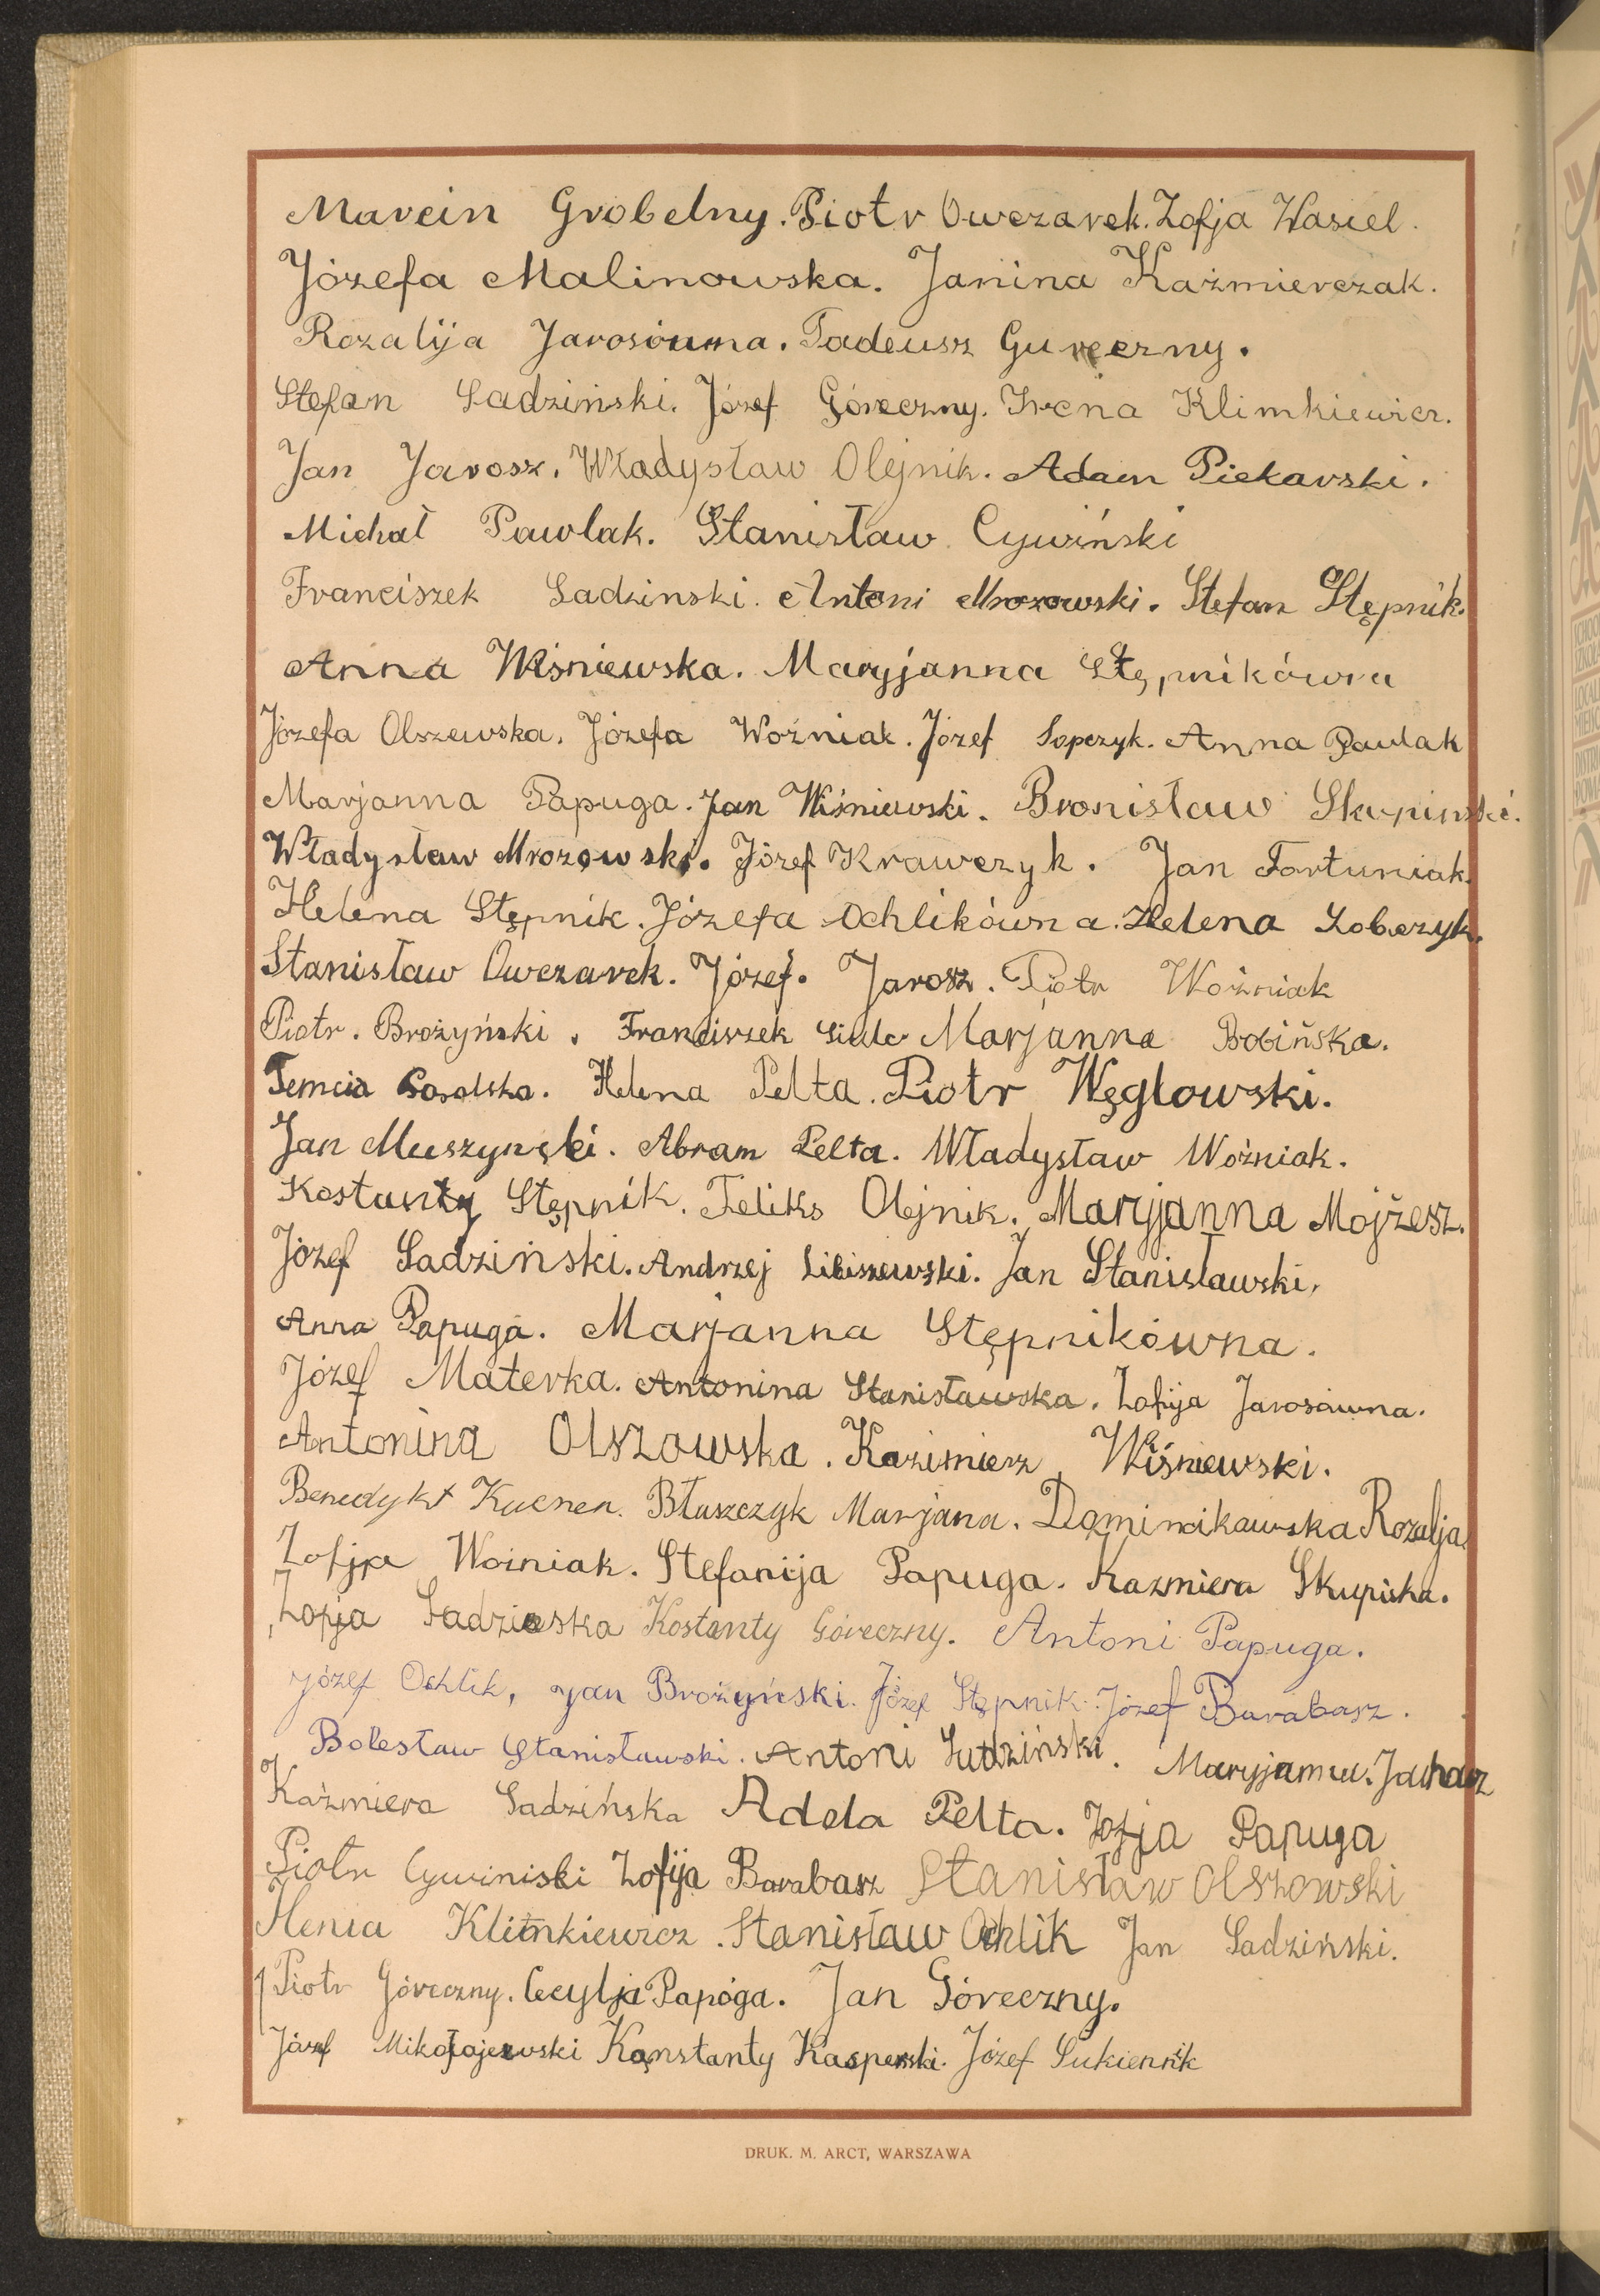 Marcin Grobelny. Piotr Owczarek. Zofja Wasiel.
Józefa Malinowska. Janina Kaźmierczak.
Rozalija Jarosówna. Tadeusz Gureczny.
Stefan Sadziński. Józef Góreczny. Irena Klimkiewicz.
Jan Jarosz. Władysław Olejnik. Adam Piekarski.
Michał Pawlak. Stanisław Cywiński
Franciszek Sadzinski. Antoni Mrozowski. Stefan Stępnik.
Anna Wiśniewska. Maryjanna Stępnikówna
Józefa Olszewska. Józefa Woźniak. Józef Sopczyk. Anna Pawlak
Marjanna Papuga. Jan Wiśniewski. Bronisław Skupinski.
Władysław Mrozowski. Józef Krawczyk. Jan Fortuniak.
Helena Stępnik. Józefa Ochlikówna. Helena Zobczyk.
Stanisław Owczarek. Józef. Jarosz. Piotr Woźniak
Piotr. Brożyński. Franciszek Marjanna Bobińska.
Temcia Helena Pelta. Piotr Węglowski.
Jan Muszyński. Abram Pelta. Władysław Woźniak.
Kostanty Stępnik. Feliks Olejnik. Maryjanna Mojżesz.
Józef Sadziński. Andrzej Libiszewski. Jan Stanisławski.
Anna Papuga. Marjanna Stępnikówna.
Józef Materka. Antonina Stanisławska. Zofija Jarosówna.
Antonina Olszowska. Kazimierz Wiśniewski.
Benedykt Kucner. Błaszczyk Marjana. Dominikawska Rozalja.
Zofija Woźniak. Stefanija Papuga. Kazmiera Skupiska.
Zofja Sadzieska Kostanty Góreczny. Antoni Papuga.
Józef Ochlik, Jan Brożyński. Józef Stępnik. Józef Barabasz.
Bolesław Stanisławski. Antoni Sudziński. Maryjanna.
Kaźmiera Sadzińska Adela Pelta. Zofja Papuga
Piotr Cywiniski Zofija Barabasz Stanisław Olszowski
Henia Klimkiewicz. Stanisław Ochlik Jan Sadziński.
Piotr Góreczny. Cecylja Papóga. Jan Góreczny.
Józef Mikołajewski Konstanty Kasperski. Józef Sukiennik
DRUK. M. ARCT, WARSZAWA